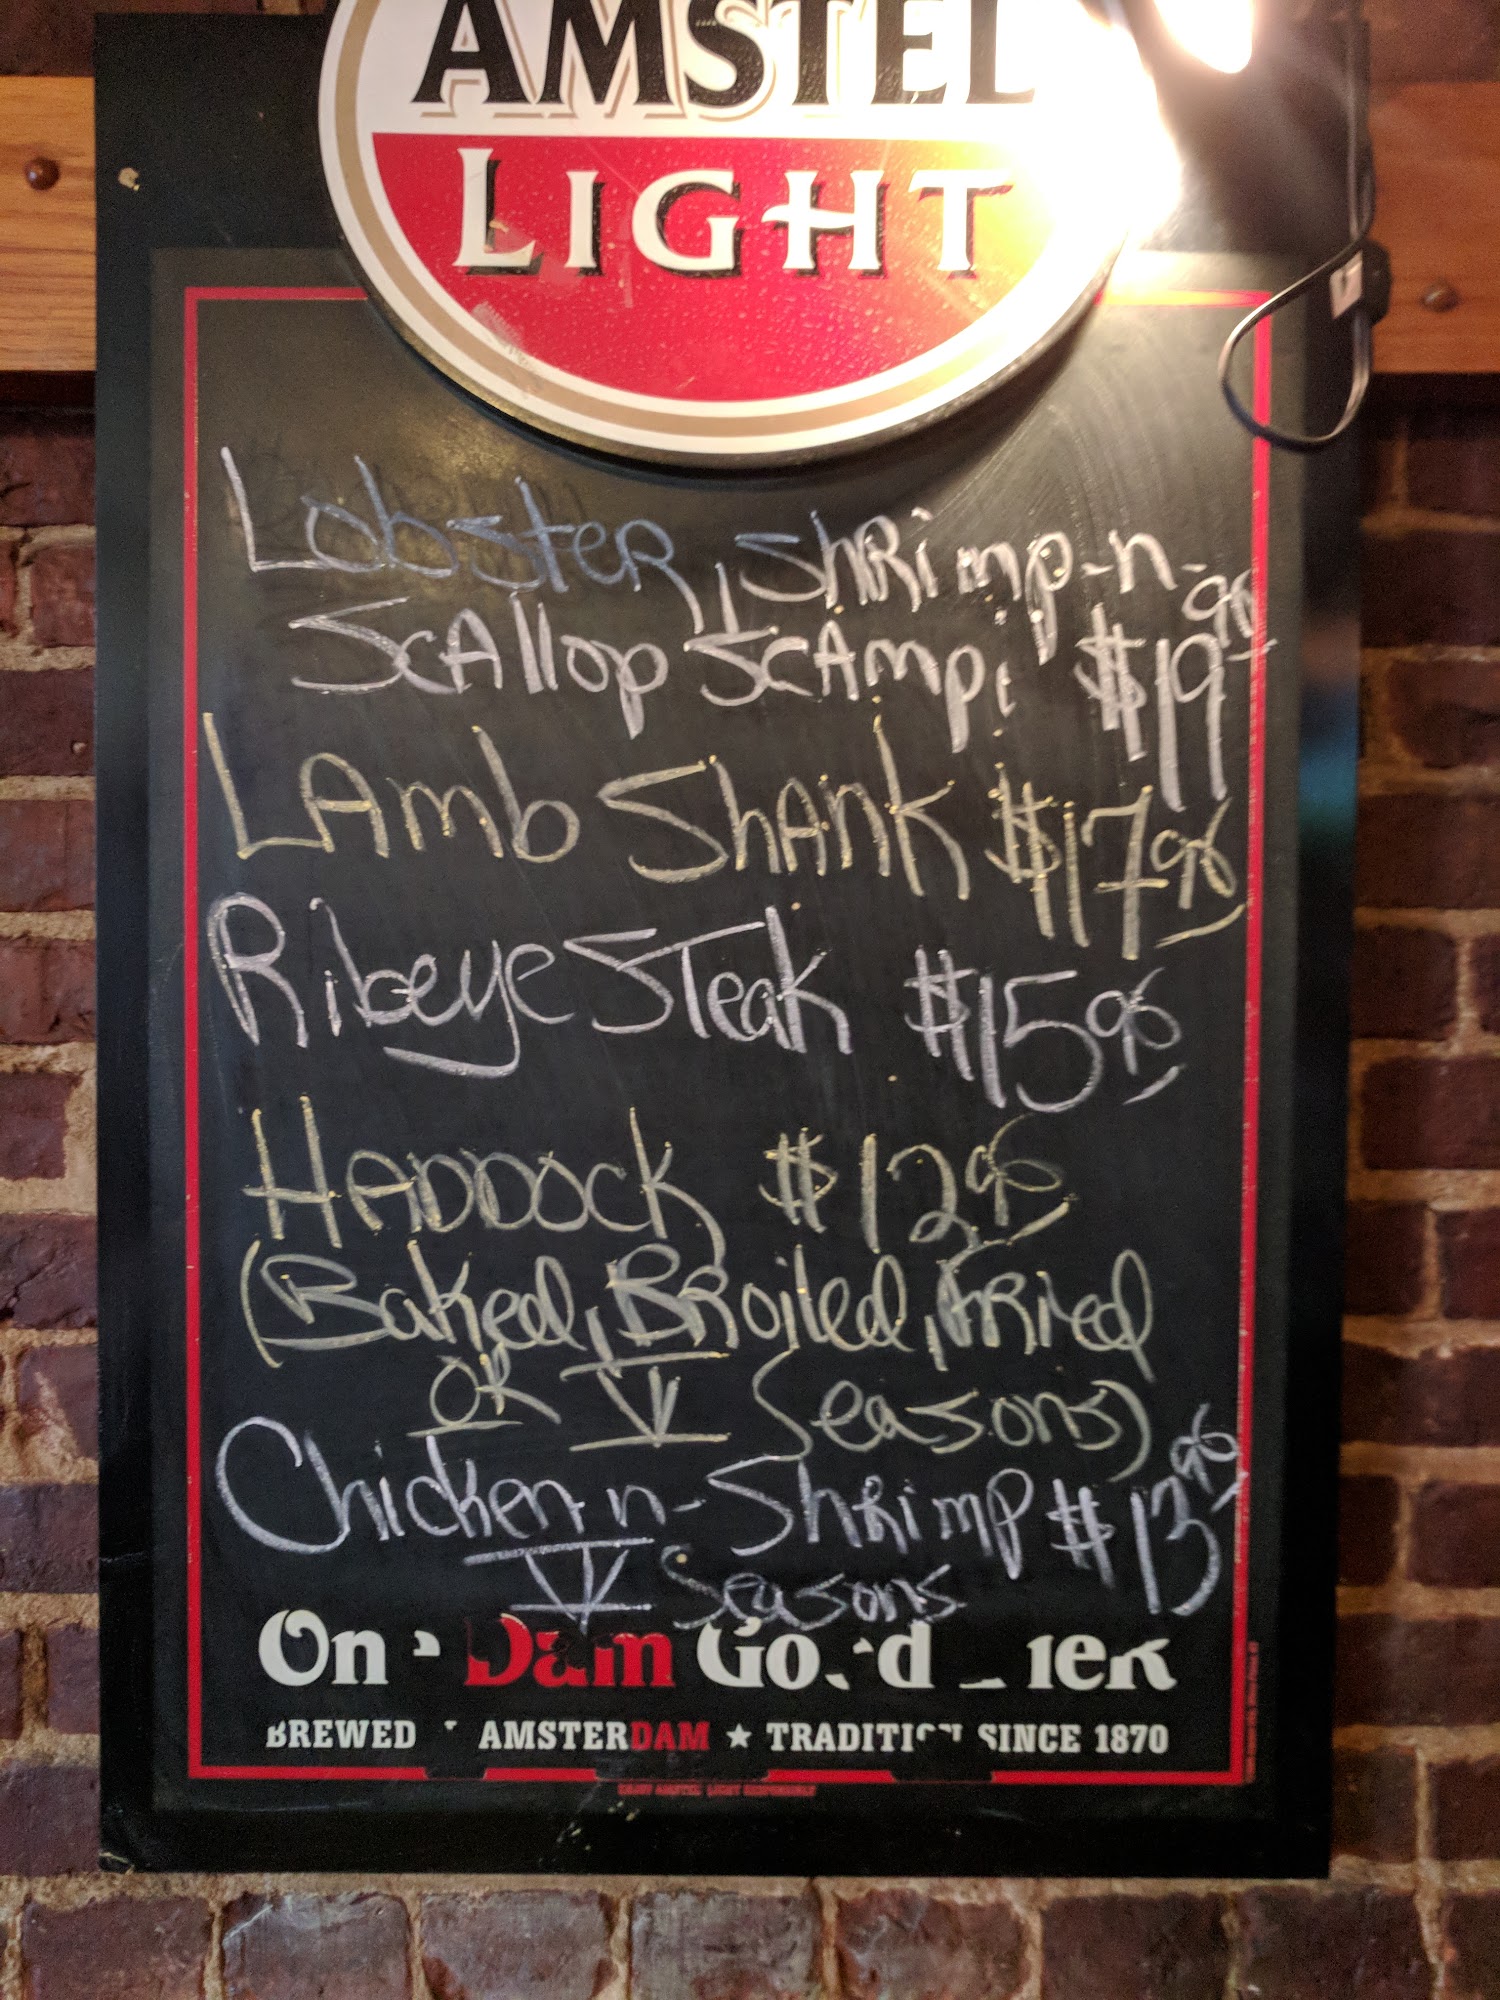 AMSTEL
LIGHT
Lobster, Shrimp-n-
Scallop Scampi $19.96
Lamb Shank $17.96
Ribeye Steak $15.96
Haddock $12.96
(Baked, Broiled, Fried
OR V Seasons)
Chicken-n-Shrimp $13.96
V Seasons
One Dam Good Bier
BREWED AMSTERDAM ★ TRADITION SINCE 1870
ENJOY AMSTEL LIGHT RESPONSIBLY